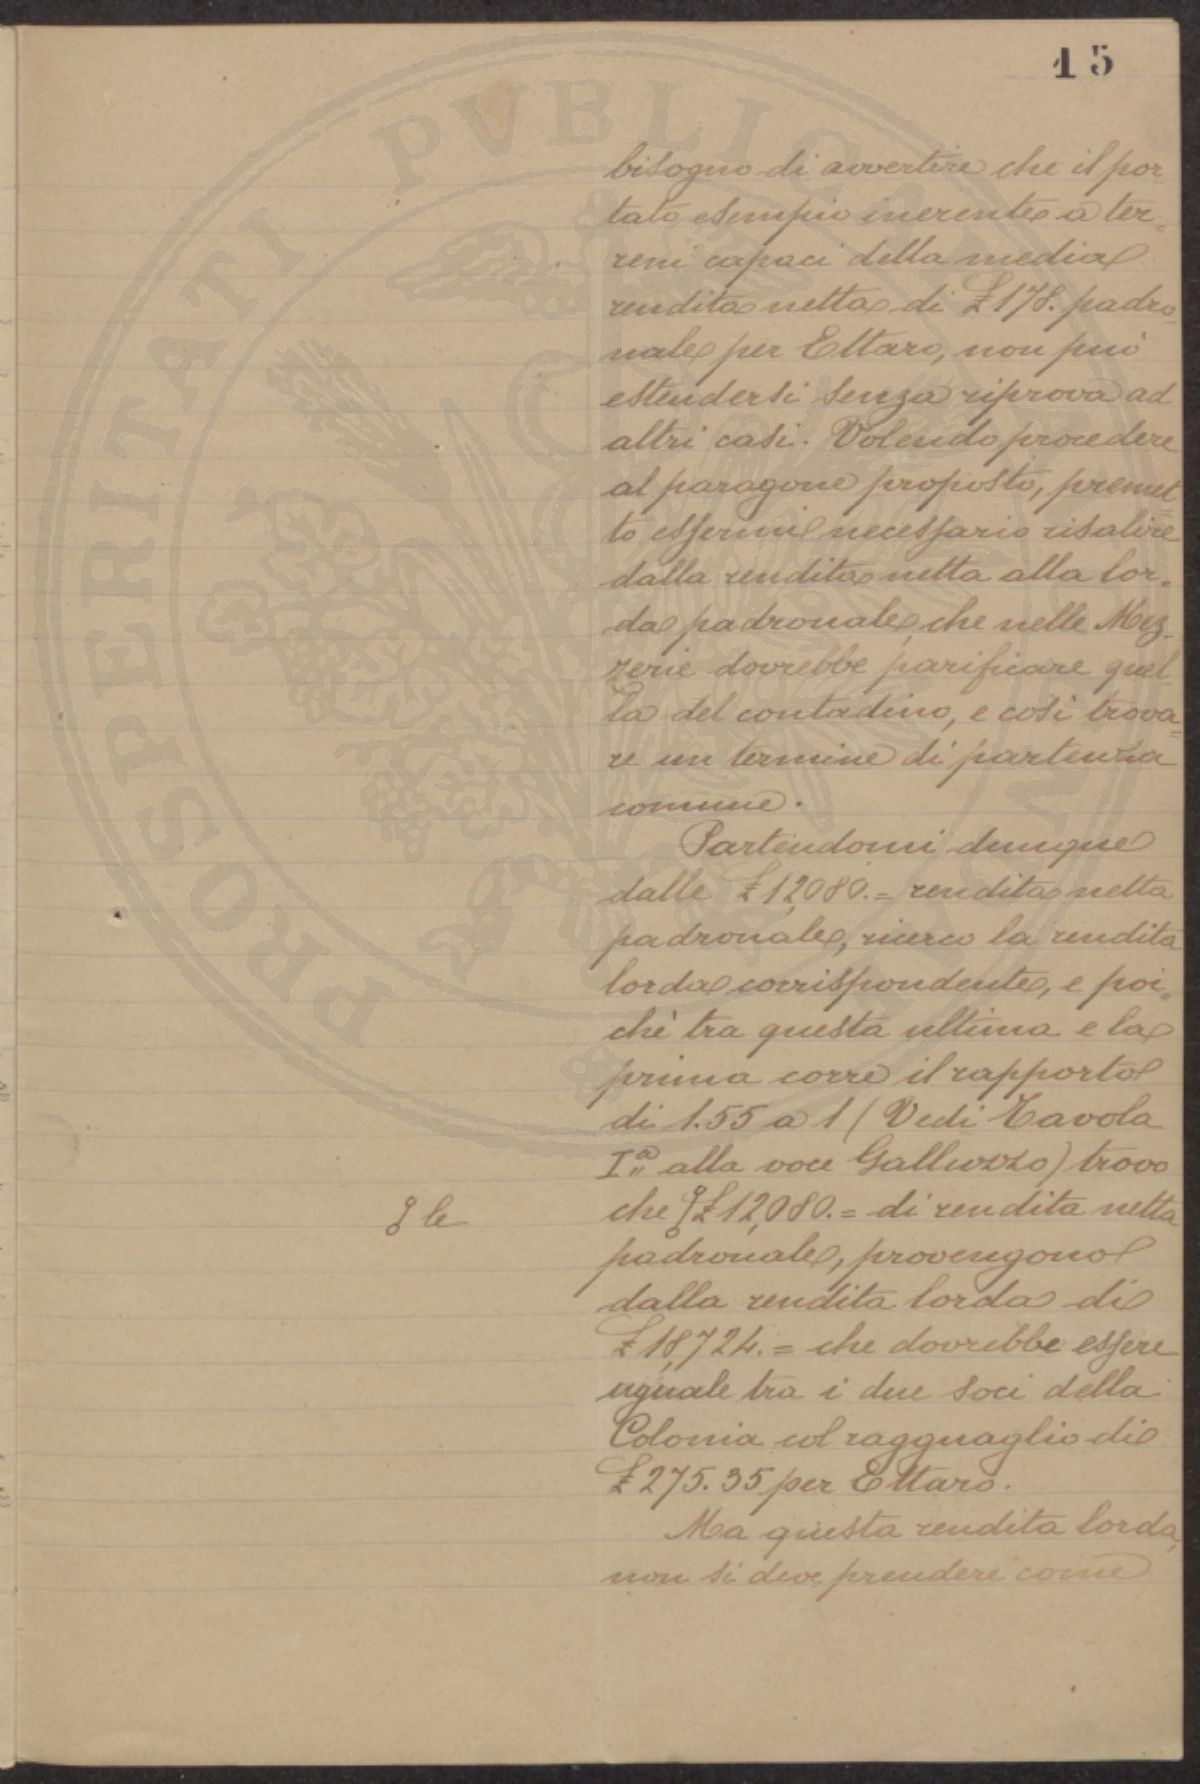 15
PROSPERITATI PVBLICAE
bisogno di avvertire che il por-
tato esempio inerente a ter-
reni capaci della media
rendita netta di £ 178. padro-
nale per Ettaro, non può
estendersi senza riprova ad
altri casi. Volendo procedere
al paragone proposto, premet-
to essermi necessario risalire
dalla rendita netta alla lor-
da padronale, che nelle Mez-
zerie dovrebbe parificare quel-
la del contadino, e così trova-
re un termine di partenza
comune.
Partendomi dunque
dalle £ 12,080.= rendita netta
padronale, ricerco la rendita
lorda corrispondente, e poi-
chè tra questa ultima e la
prima corre il rapporto
di 1.55 a 1 (Vedi Tavola
I.ª alla voce Galluzzo) trovo
che £ 12,080.= di rendita netta
le
padronale, provengono
dalla rendita lorda di
£ 18,724.= che dovrebbe essere
uguale tra i due soci della
Colonia col ragguaglio di
£ 275.35 per Ettaro.
Ma questa rendita lorda,
non si deve prendere come